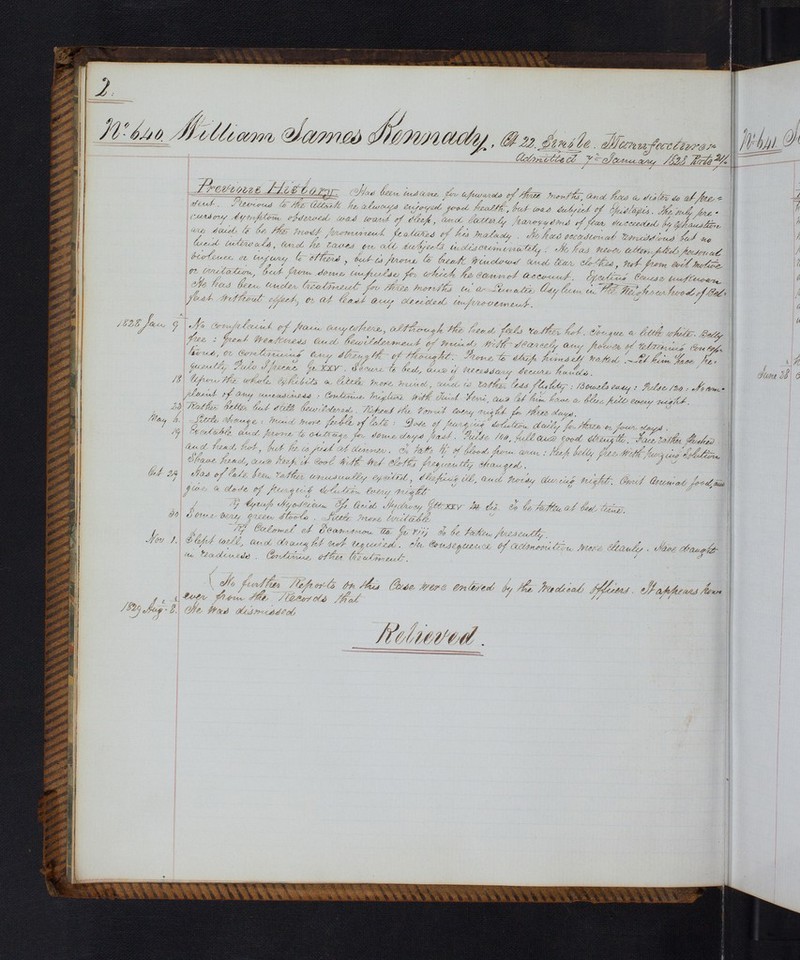 2.
No. 640. William James Kennady. Æt 22. Single. Manufacturer
Admitted 7th January 1828. Rate 21/.
Previous History. Has been insane for upwards of three months, and has a sister so at pre=
sent. Previous to the attack he always enjoyed good health, but was subject of Epistaxis. The only pre=
cursory symptom observed was want of sleep, and latterly paroxysms of fear succeeded by exhaustion
are said to be the most prominent features of his malady. He has occasional remissions but no
lucid intervals, and he raves on all subjects indiscriminately. He has never attempted personal
violence or injury to others, but is prone to break windows and tear clothes, not from evil motive
or irritation, but from some impulse for which he cannot account. Exciting cause unknown
He has been under treatment for three months in a Lunatic Asylum in the Neighbourhood of Bel=
fast without effect, or at least any decided improvement.
1828 Jan 9 No complaint of pain anywhere, although the head feels rather hot. Tongue a little white. Belly
free: Great weakness and bewilderment of mind with scarcely any power of retaining concep=
tions, or continuing any strength of thought. Prone to strip himself naked. Let him have fre=
quently Pulv Ipecac Gr XXV. Secure to bed, and if necessary secure hands.
18 Upon the whole exhibits a little more mind, and is rather less flighty: Bowels easy: Pulse 120: No com=
plaint of any uneasiness: Continue mixture with Tart Ferri, and let him have a blue pill every night.
Rather better but still bewildered. Repeat the Vomit every night for three days.
May 6 Little change: mind more feeble of late: Dose of purging solution daily for three or four days.
19 Excitable and prone to outrage for some days past. Pulse 100, full and good strength. Face rather flushed
and head hot, but he is just at dinner. of blood from arm: Keep belly free with purging Solution
Shave head, and keep it cool with wet cloths frequently changed.
Oct 29 Has of late been rather unusually excited, sleeping ill, and noisy during night. Omit Animal food, and
give a dose of purging solution every night
℞ Syrup Hyosciam Acid Hydrocy Gtt XXV. To be taken at bed time.
30 Some very green stools. Little more irritable.
℞ Calomel et Scammon To be taken presently.
Nov. 1. Slept well, and draught not required. In consequence of admonition more cleanly. Have draught
in readiness. Continue other treatment.
(No further Reports on this Case were entered by the Medical Officers. It appears how=
ever from the Records that
1829 Aug. 8. He was dismissed
Relieved.
No 641
June 28